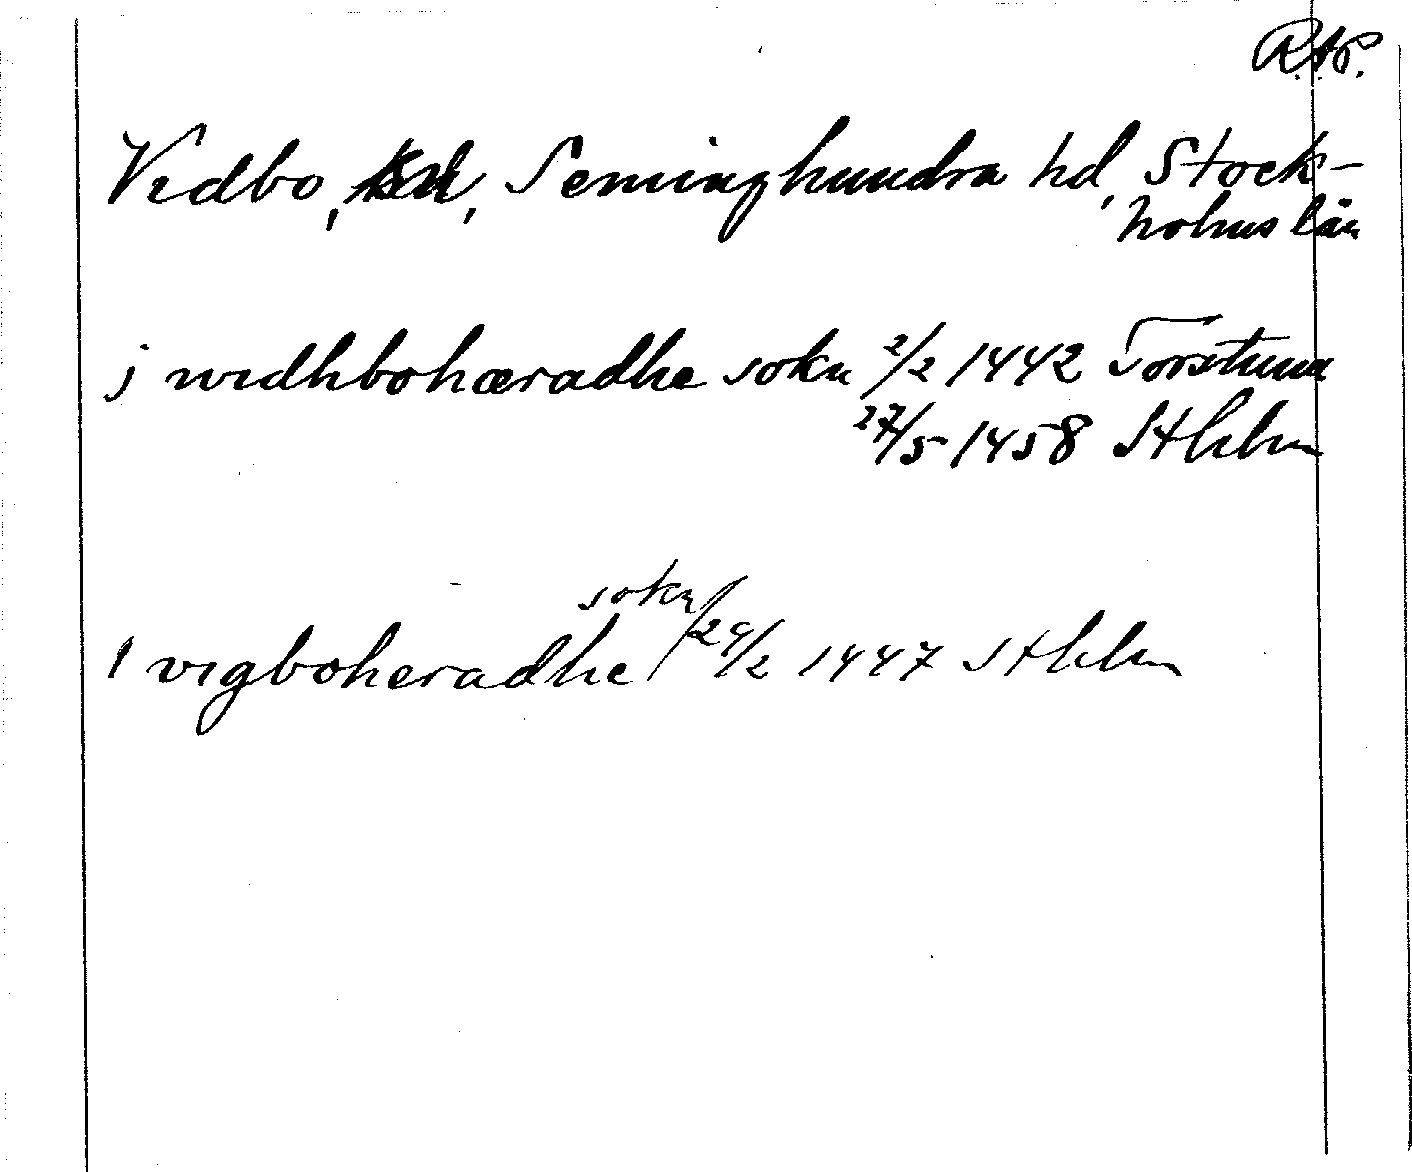 R.A.P.
Vidbo, sn, Seminghundra hd, Stock-
holms län
j widhbohæradhe sokn 2/2 1442 Torstuna
27/5 1458 Sthlm
sokn
I vigboheradhe / 29/2 1447 Sthlm